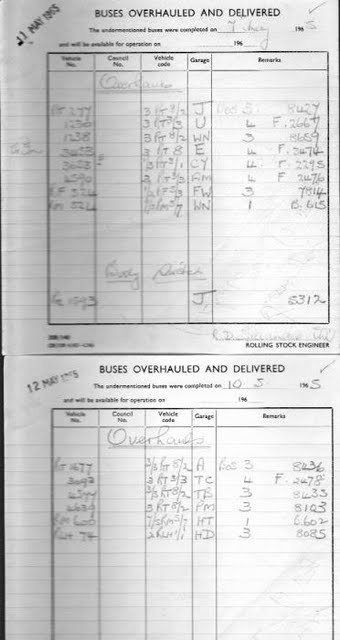 11 MAY 1965
BUSES OVERHAULED AND DELIVERED
The undermentioned buses were completed on 7 May 1965
and will be available for operation on 196
Vehicle No. Council No. Vehicle code Garage Remarks
Overhauls
RT 277 3 RT 8/2 J Bos 3 8427
1230 3 RT 3/3 U 4 F. 2667
1238 3 RT 8/2 WN 3 8659
3453 3 RT 8 E 4 F. 2474
3053 3 RT 3/1 CY 4 F. 2295
4590 3 RT 3/3 RM 4 F 2476
RF 324 FW 3 7814
RM 524 WN 1 B.615
Body Switch
1593 J 5312
ROLLING STOCK ENGINEER
12 MAY
BUSES OVERHAULED AND DELIVERED
The undermentioned buses were completed on 10 5 1965
and will be available for operation on 196
Vehicle No. Council No. Vehicle code Garage Remarks
Overhauls
RT 1677 RT 8/2 A Bos 3 8436
3093 3 RT 3/3 TC 4 F. 2478
4577 3 RT 8/2 TB 3 8433
4639 3 RT 8/2 PM 3 8103
RM 600 HT 1 B.602
RLH 74 2 RLH 1/1 HD 3 8085